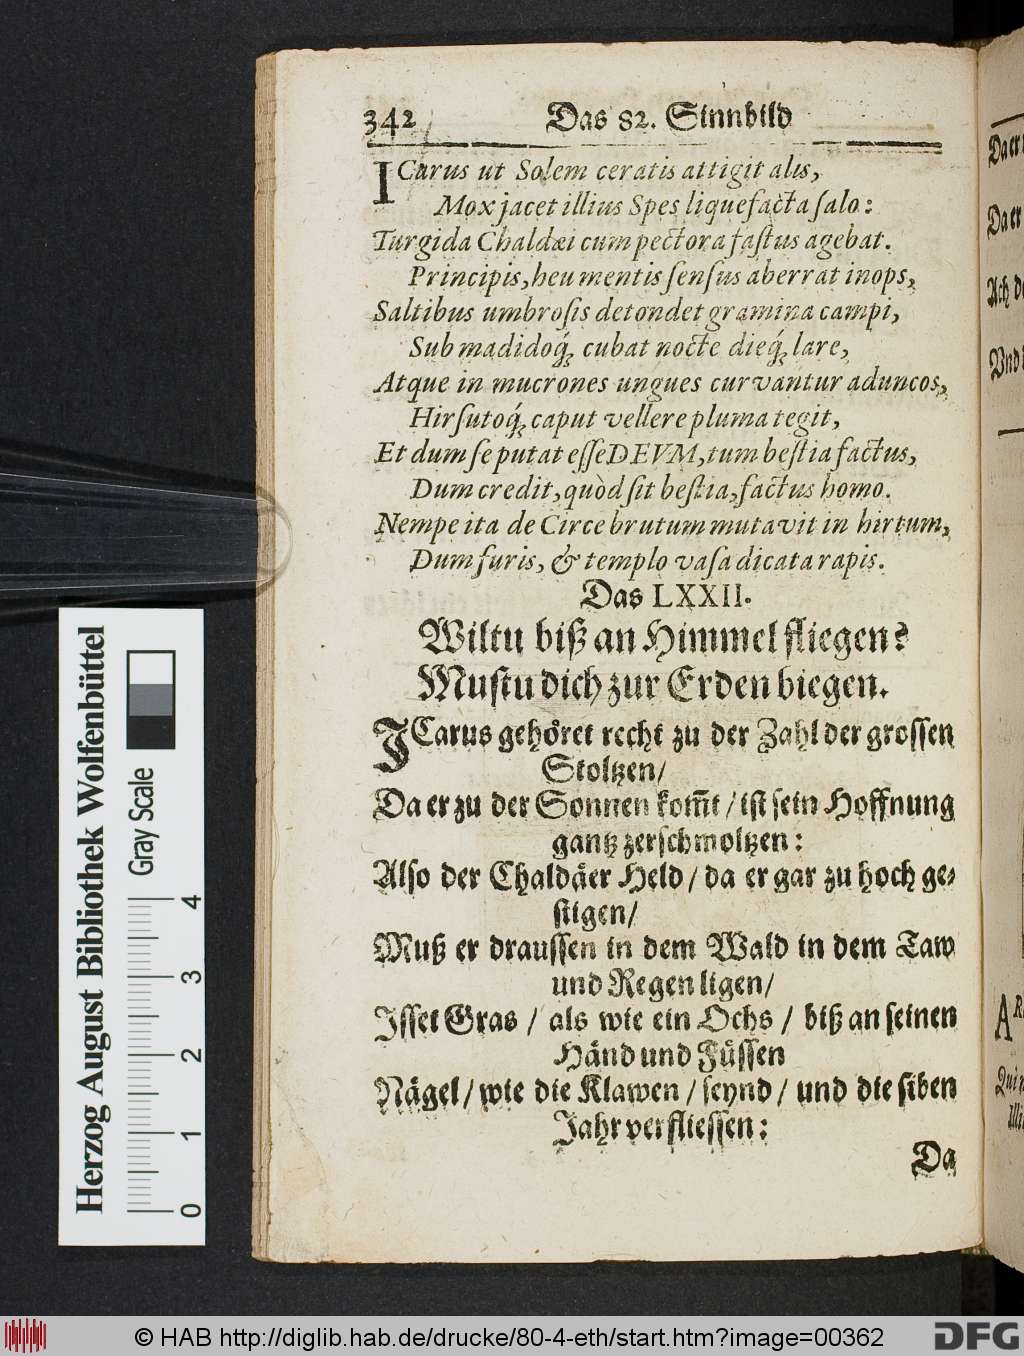 342 Das 82. Sinnbild
ICarus ut Solem ceratis attigit alis,
Mox jacet illius Spes liquefacta ſalo:
Turgida Chaldæi cum pectora faſtus agebat.
Principis, heu mentis ſenſus aberrat inops,
Saltibus umbroſis detondet gramina campi,
Sub madidoq́; cubat nocte dieq́; lare,
Atque in mucrones ungues curvantur aduncos,
Hirſutoq́; caput vellere pluma tegit,
Et dum ſe putat eſſe DEVM, tum beſtia factus,
Dum credit, quòd ſit beſtia, factus homo.
Nempe ita de Circe brutum mutavit in hirtum,
Dum furis, & templo vaſa dicata rapis.
Das LXXII.
Wiltu biß an Himmel fliegen?
Muſtu dich zur Erden biegen.
ICarus gehöret recht zu der Zahl der groſſen
Stoltzen/
Da er zu der Sonnen kom̃t / iſt ſein Hoffnung
gantz zerſchmoltzen:
Alſo der Chaldäer Held / da er gar zu hoch ge-
ſtigen/
Muß er drauſſen in dem Wald in dem Taw
und Regen ligen/
Iſſet Gras / als wie ein Ochs / biß an ſeinen
Händ und Füſſen
Nägel / wie die Klawen / ſeynd / und die ſiben
Jahr verflieſſen:
Da
Da er
Da er
Ach d
Und
A
Qui
Herzog August Bibliothek Wolfenbüttel
Gray Scale
0 1 2 3 4
© HAB http://diglib.hab.de/drucke/80-4-eth/start.htm?image=00362
DFG